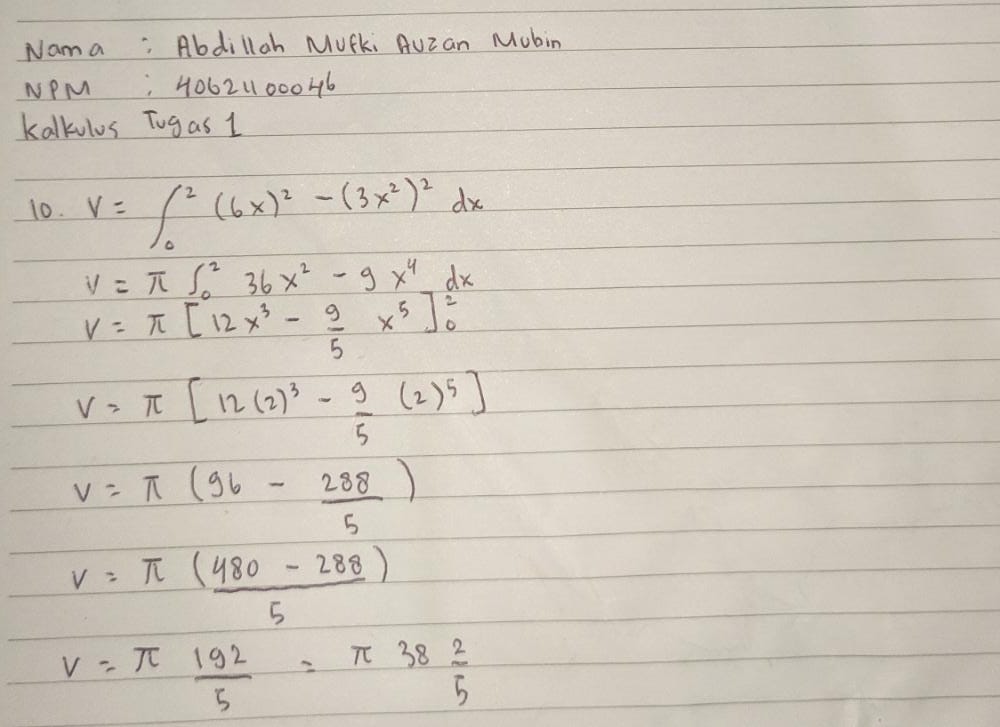 Nama : Abdillah Mufki Auzan Mubin
NPM : 40621100046
Kalkulus Tugas 1
10. V = ∫₀² (6x)² - (3x²)² dx
V = π ∫₀² 36x² - 9x⁴ dx
V = π [12x³ - 9/5 x⁵]₀²
V = π [12(2)³ - 9/5 (2)⁵]
V = π (96 - 288/5)
V = π (480 - 288)/5
V = π 192/5 = π 38 2/5